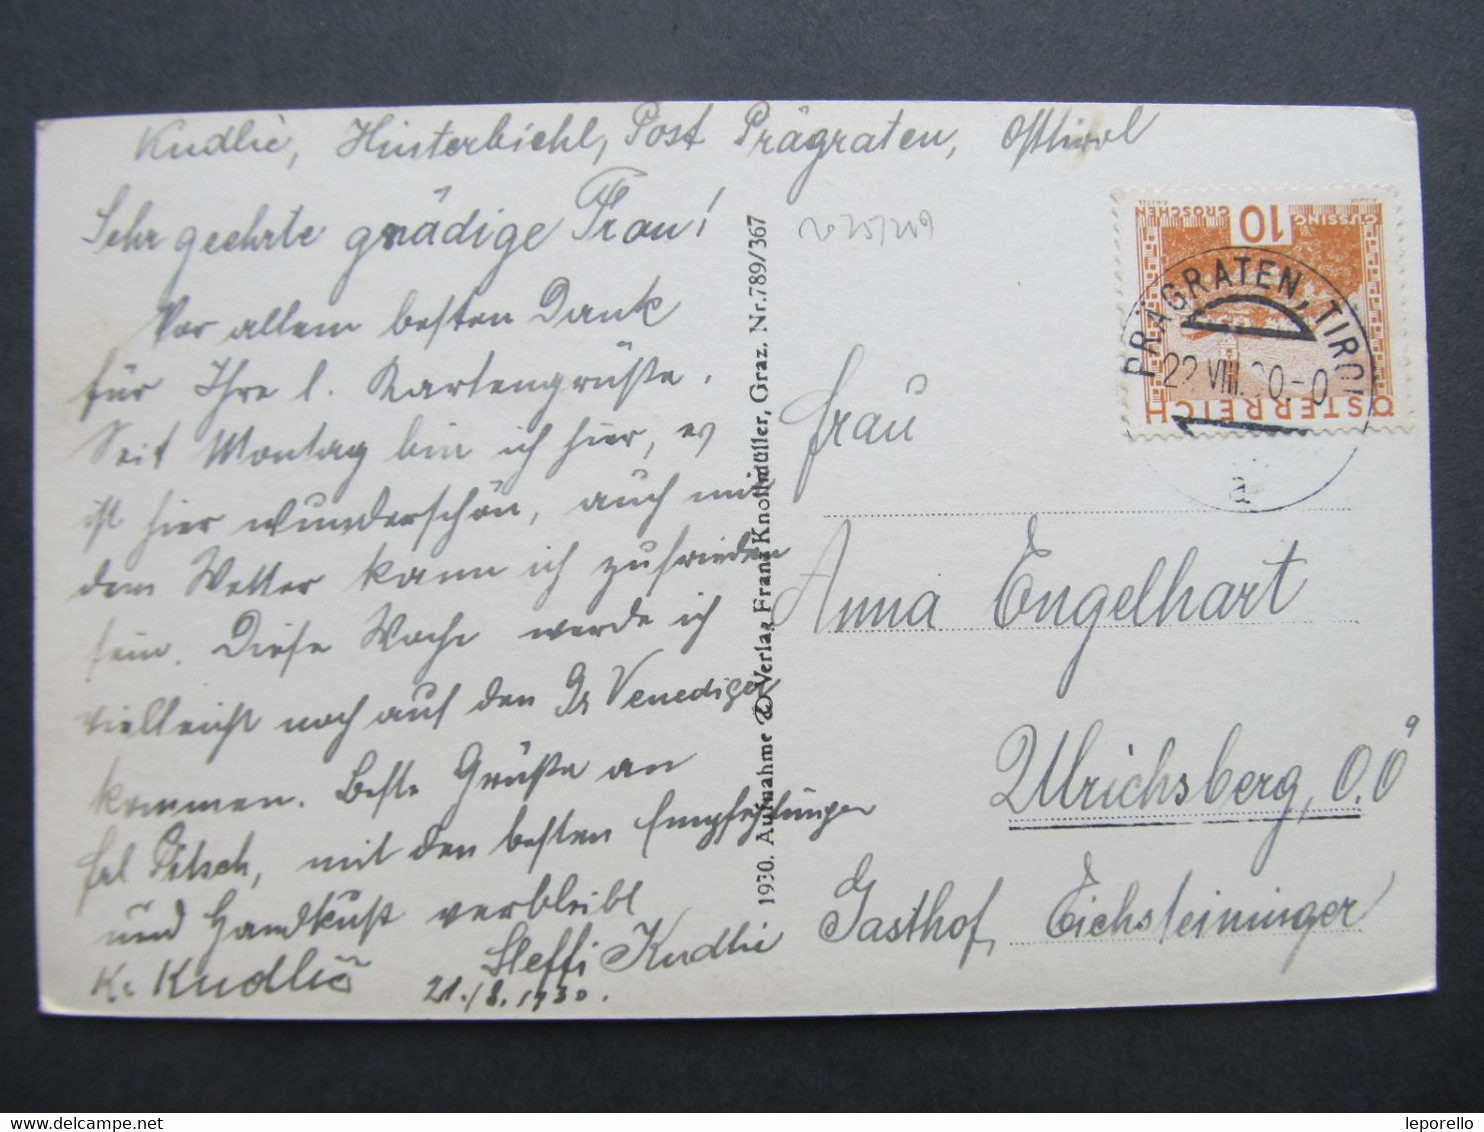 Kudlič, Hinterbichl, Post Prägraten, Osttirol
Sehr geehrte gnädige Frau!
Vor allem besten Dank
für Ihre l. Kartengrüße.
Seit Montag bin ich hier, es
ist hier wunderschön, auch mit
dem Wetter kann ich zufrieden
sein. Diese Woche werde ich
vielleicht noch auf den Gr Venediger
kommen. Beste Grüße an
Frl Pitsch, mit den besten Empfehlungen
und Handkuß verbleibt
Steffi Kudlič
K. Kudlič
21./8. 1930.
1930. Aufnahme & Verlag Franz Knollmüller, Graz. Nr. 789/367
10
GROSCHEN
GÜSSING
ÖSTERREICH
PRÄGRATEN, TIROL
22 VIII. 30-0
a
Frau
Anna Engelhart
Ulrichsberg, O.Ö
Gasthof Eichsteininger
leporello